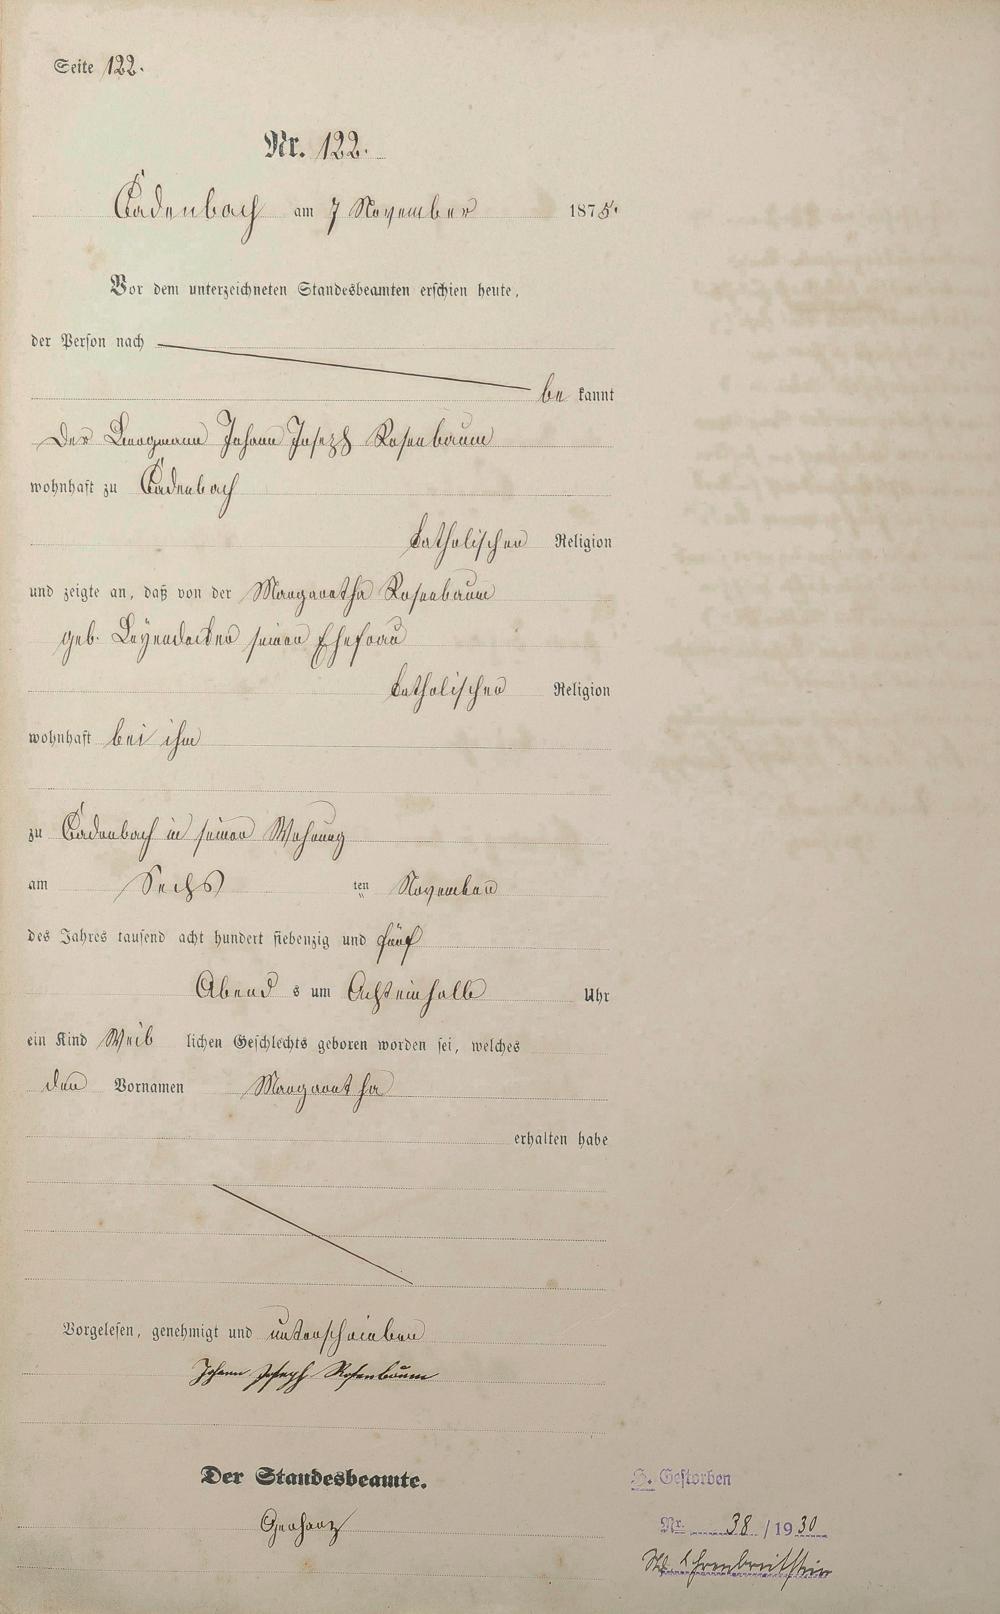 Seite 122.
Nr. 122.
Cadenbach am 7 November 1875.
Vor dem unterzeichneten Standesbeamten erschien heute,
der Person nach
be kannt
Der Bergmann Johann Joseph Rosenbaum
wohnhaft zu Cadenbach
katholischer Religion
und zeigte an, daß von der Margaretha Rosenbaum
geb. Leyendecker seiner Ehefrau
katholischer Religion
wohnhaft bei ihm
zu Cadenbach in seiner Wohnung
am Sechs ten November
des Jahres tausend acht hundert siebenzig und fünf
Abend s um Achteinhalb Uhr
ein Kind Weib lichen Geschlechts geboren worden sei, welches
den Vornamen Margaretha
erhalten habe
Vorgelesen, genehmigt und unterschrieben
Johann Joseph Rosenbaum
Der Standesbeamte.
Gerharz
G. Gestorben
Nr. 38 / 1930
Ehrenbreitstein